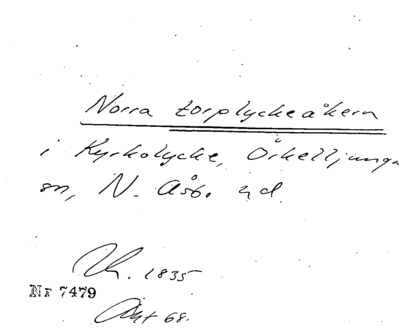 Norra torplyckeåkern
i Kyrkolycke, Örkelljunga
sn, N. Åsb. hd.
1835
Nr 7479
Akt 68.